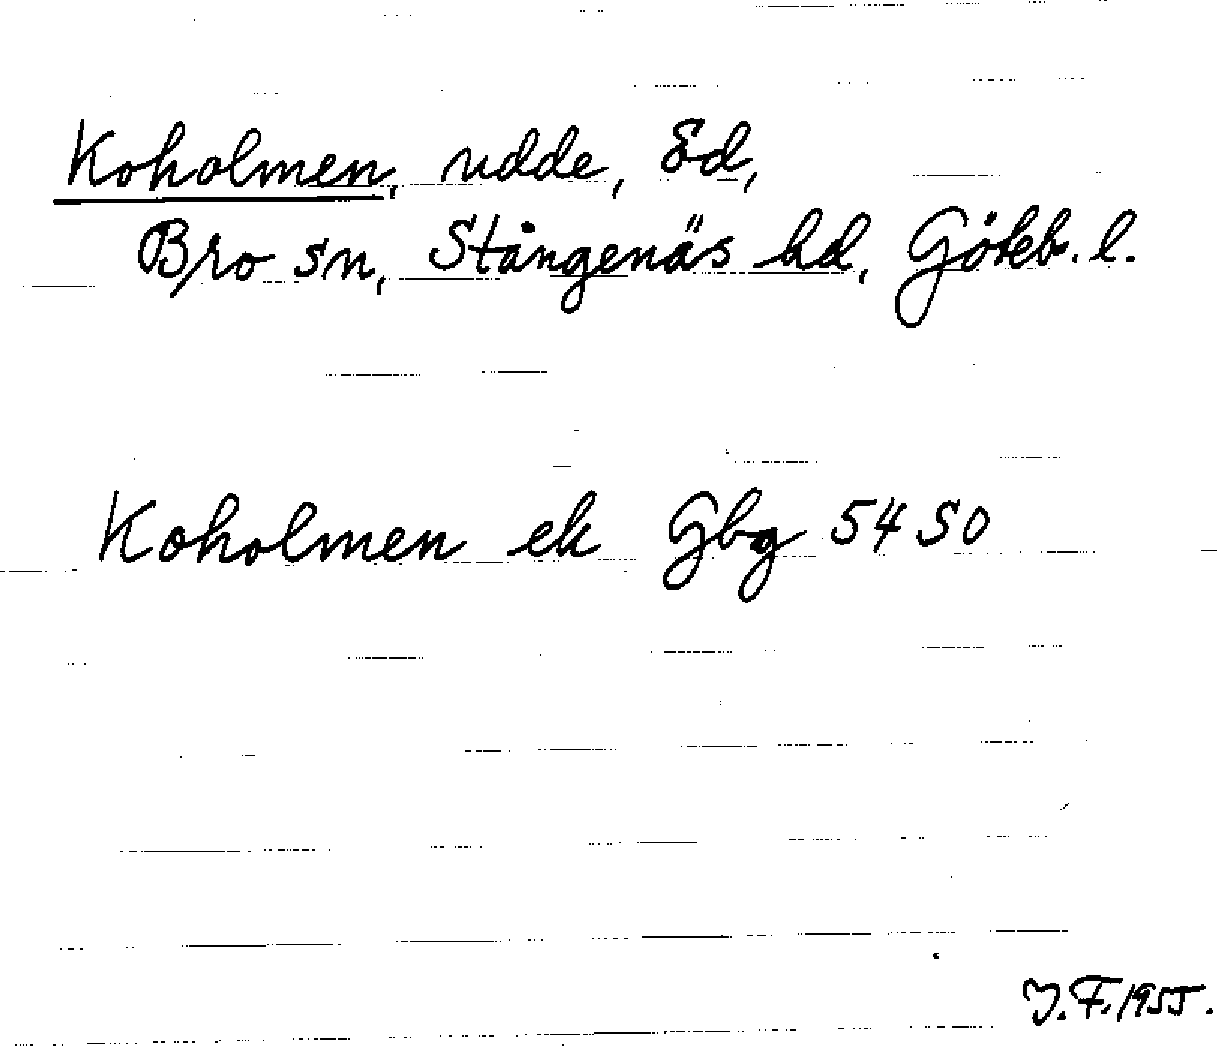 Koholmen, udde, Ed,
Bro sn, Stångenäs hd, Göteb. l.
Koholmen ek Gbg 54 SO
J.F. 1955.